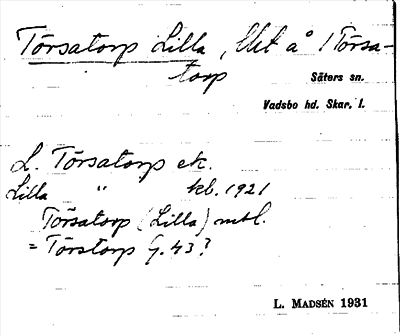 Törsatorp Lilla, Utj å /Törsa-
torp
Säters sn.
Vadsbo hd. Skar. l.
L. Törsatorp ek.
Lilla " kb. 1921
Törsatorp (Lilla) mbl.
= Törstorp G. 43?
L. MADSÉN 1931